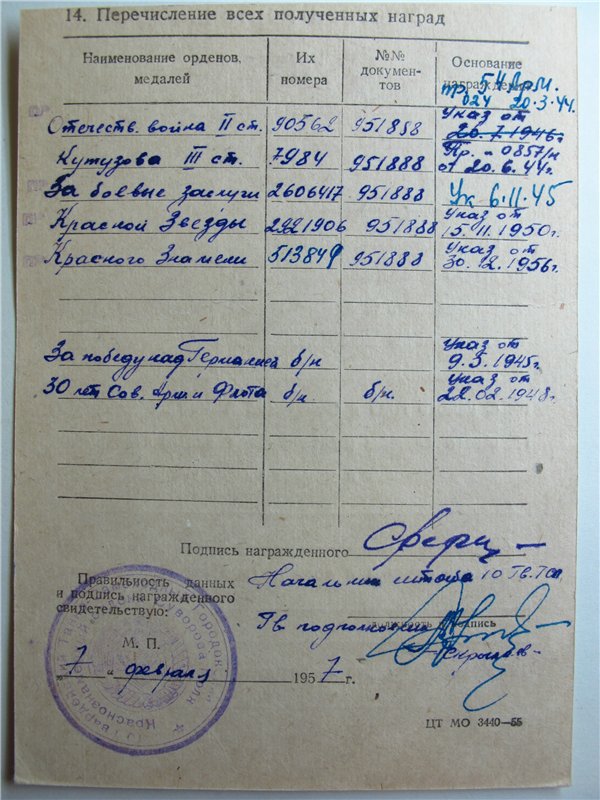 14. Перечисление всех полученных наград
Наименование орденов, медалей
Их номера
№№ документов
Основание награждения
пр. 54 Арм.
024 20-3-44г.
Отечеств. война II ст. 90562 951888 Указ от 20.7.1946г
Кутузова III ст. 7984 951888 Пр. - 0857/н от 20.6.44г.
За боевые заслуги 2606417 951888 Ук 6.11.45
Красной Звезды 2921906 951888 Указ от 15.11.1950г.
Красного Знамени 513849 951888 Указ от 30.12.1956г.
За победу над Германией б/н Указ от 9.5.1945г.
30 лет Сов. Арм и Флота б/н. б/н. Указ от 22.02.1948г.
Подпись награжденного
Правильность данных и подпись награжденного свидетельствую:
Начальник штаба 10 Гв. ТСП
Гв подполковник
должность и подпись
М. П.
„7“ февраля 1957 г.
ЦТ МО 3440—55